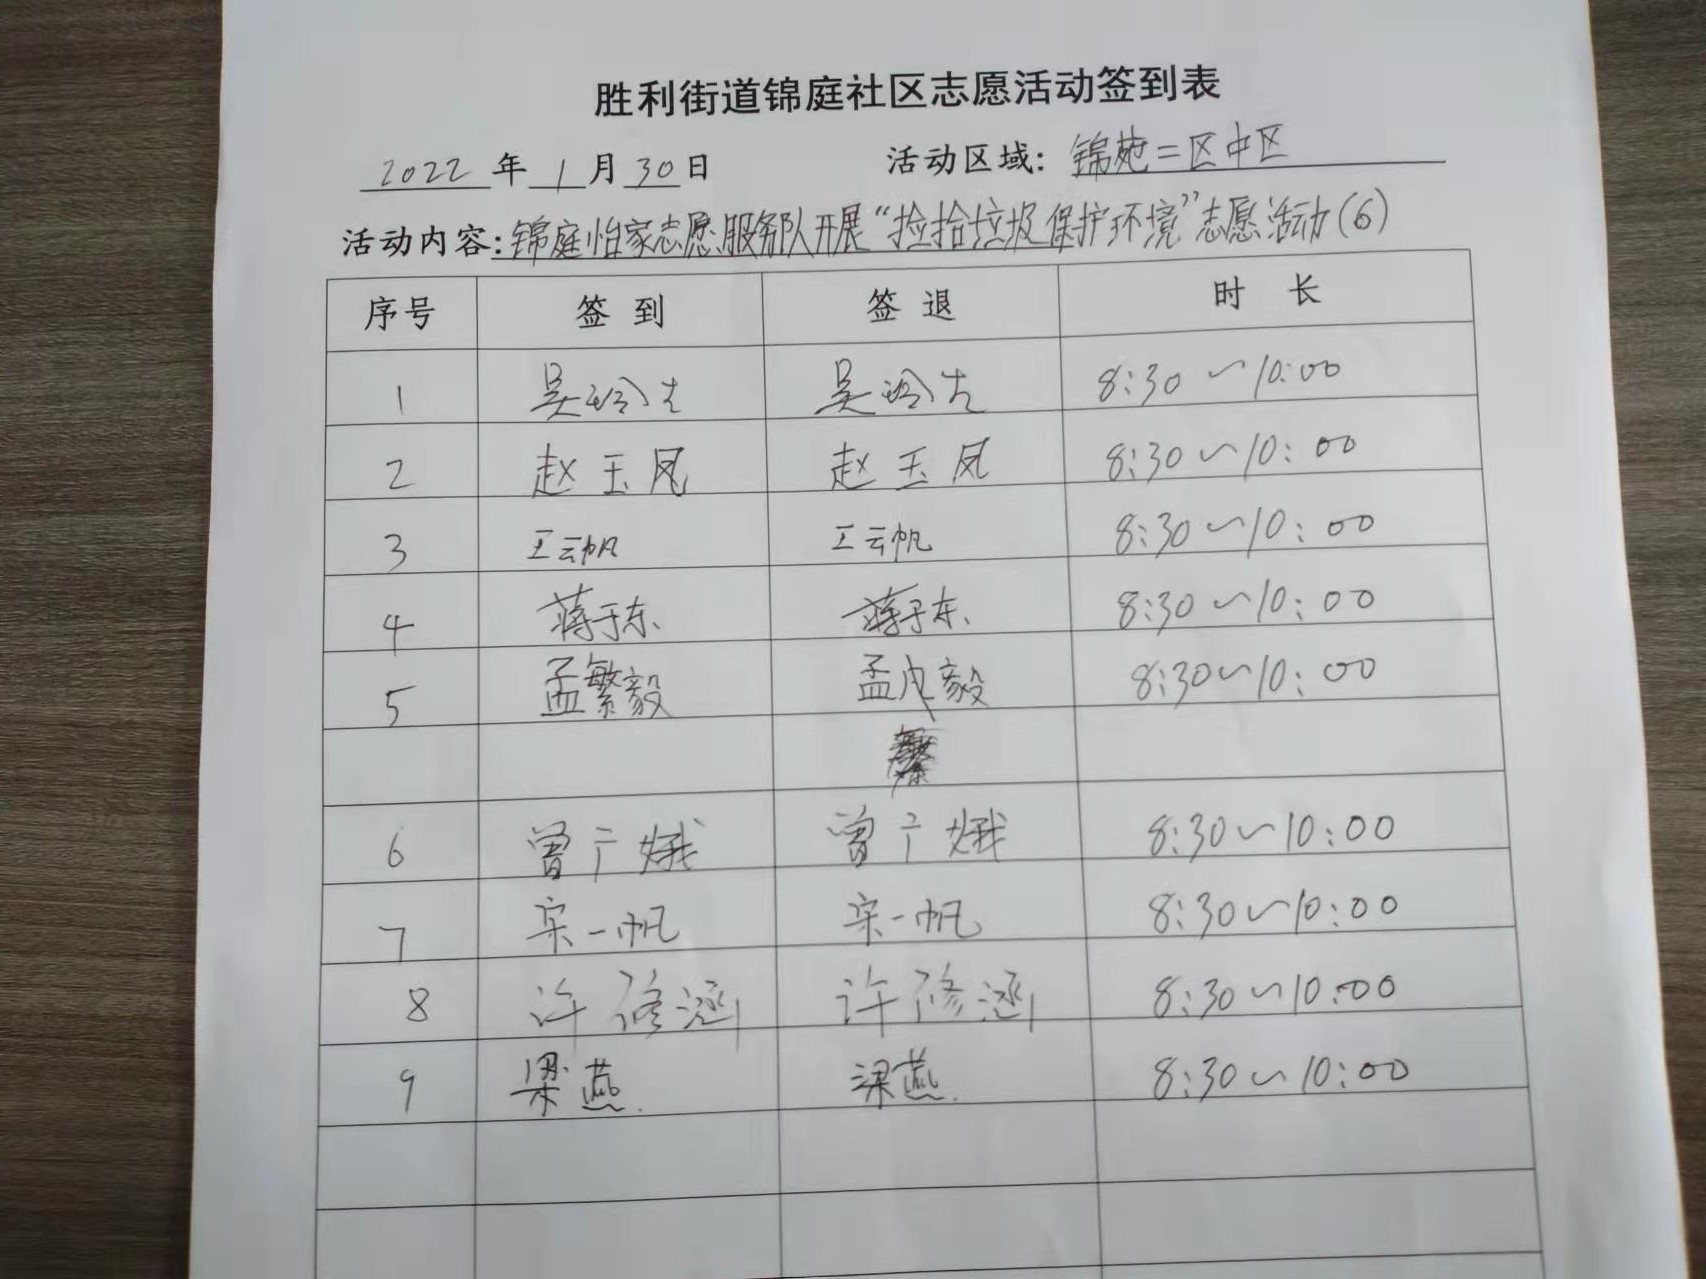 胜利街道锦庭社区志愿活动签到表
2022年1月30日 活动区域：锦苑二区中区
活动内容：锦庭怡家志愿服务队开展“捡拾垃圾 保护环境”志愿活动(6)
序号 签到 签退 时长
1 吴 吴 8:30～10:00
2 赵玉凤 赵玉凤 8:30～10:00
3 王云帆 王云帆 8:30～10:00
4 蒋于东 蒋于东 8:30～10:00
5 孟繁毅 孟 毅 8:30～10:00
6 曾广娥 曾广娥 8:30～10:00
7 宋一帆 宋一帆 8:30～10:00
8 许修涵 许修涵 8:30～10:00
9 梁燕 梁燕 8:30～10:00